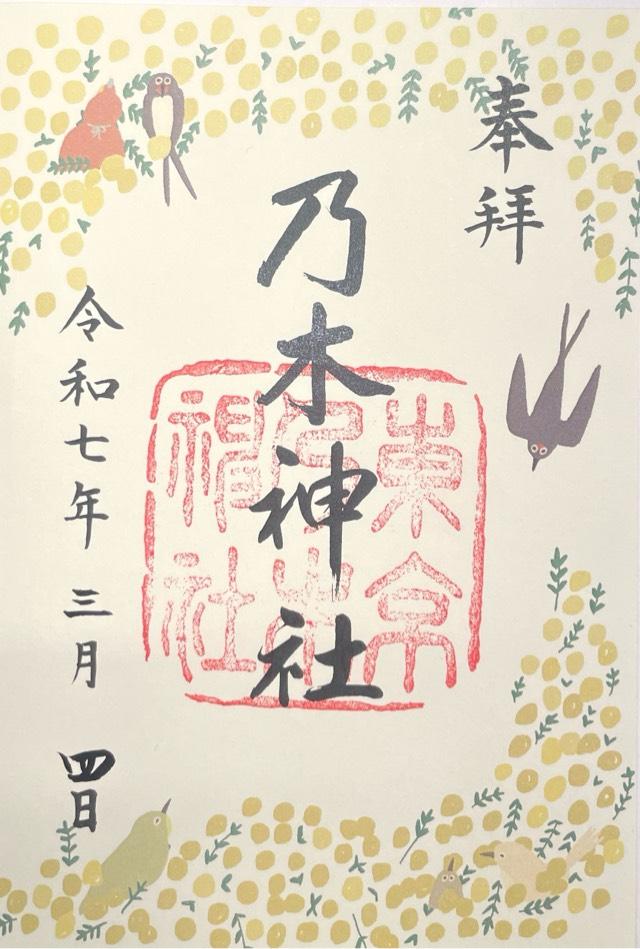 奉拝
乃木神社
東京
乃木
神社
令和七年 三月 四日